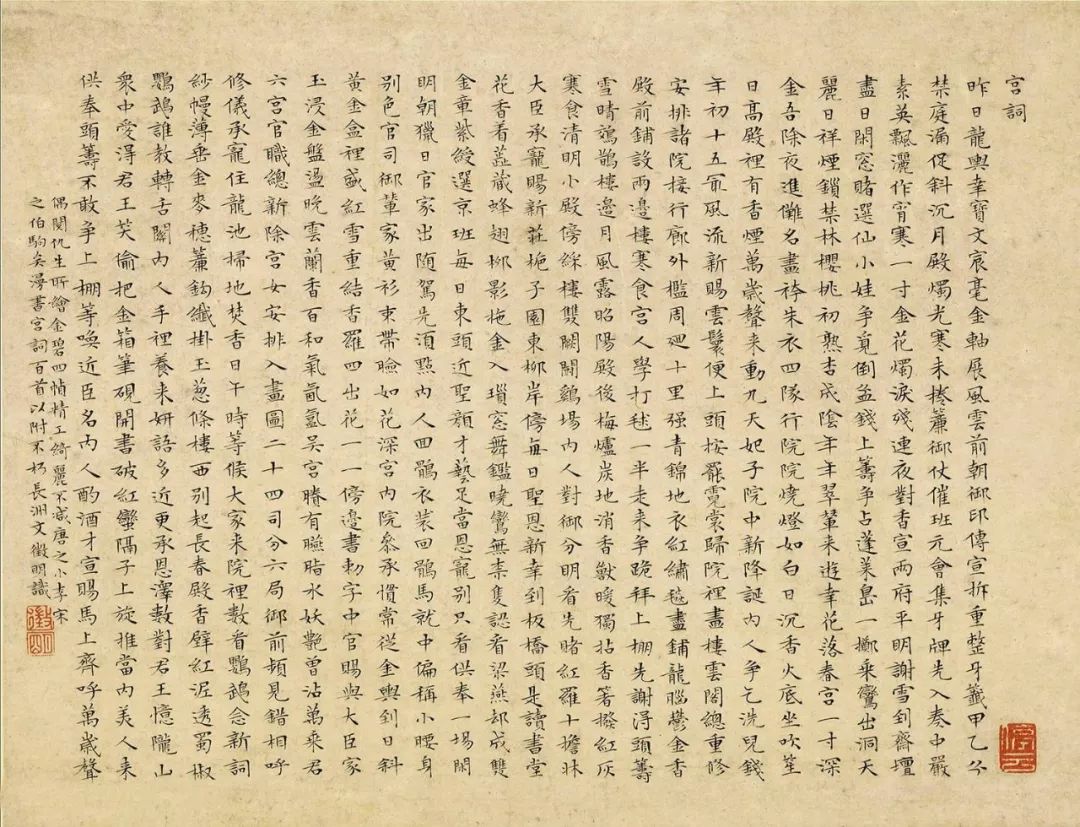 宮詞
昨日龍輿幸寶文宸毫金軸展風雲前朝御印傳宣拆重整牙籤甲乙分
禁庭漏促斜沉月殿燭光寒未捲簾御仗催班元會集牙牌先入奏中嚴
素英飄灑作宵寒一寸金花燭淚殘連夜對香宣兩府平明謝雪到齋壇
盡日閑窓賭選仙小娃爭覓倒盆錢上籌爭占蓬萊島一擲乘鸞出洞天
麗日祥煙鎖禁林櫻桃初熟杏成陰年年翠輦來遊幸花落春宮一寸深
金吾除夜進儺名畫袴朱衣四隊行院院燒燈如白日沉香火底坐吹笙
日高殿裡有香煙萬歲聲来動九天妃子院中新降誕內人爭乞洗兒錢
年初十五㝡風流新賜雲鬟便上頭按罷霓裳歸院裡畫樓雲閣總重修
安排諸院接行廊外檻周廻十里强青錦地衣紅繡毯盡鋪龍腦鬱金香
殿前鋪設兩邊樓寒食宮人學打毬一半走来爭跪拜上棚先謝淂頭籌
雪晴鳷鵲樓邊月風露昭陽殿後梅爐炭地消香獸暖獨拈香箸撥紅灰
寒食清明小殿傍綵樓雙闕鬭鷄場內人對御分明看先賭紅羅十擔牀
大臣承寵賜新莊梔子園東柳岸傍每日聖恩新幸到板橋頭是讀書堂
花香着蕋藏蜂翅柳影拖金入瑣窓舞鑑曉鸞無柰隻認看梁燕却成雙
金章紫綬選京班每日東頭近聖顏才藝足當恩寵別只看供奉一場閑
明朝獵日官家出随駕先湏點內人回鶻衣裝回鶻馬就中偏稱小腰身
別色官司御輦家黃衫束帶臉如花深宮內院叅承慣常從金輿到日斜
黃金盒裡盛紅雪重結香羅四出花一一傍邊書勅字中官賜與大臣家
玉浸金盤盪晚雲蘭香百和氣氤氳吳宮賸有臙脂水妖艷曾沾萬乘君
六宮官職總新除宮女安排入畫圖二十四司分六局御前頻見錯相呼
修儀承寵住龍池掃地焚香日午時等候大家来院裡教看鸚鵡念新詞
紗幔薄垂金麥穗簾鈎纖掛玉葱條樓西別起長春殿香壁紅泥透蜀椒
鸚鵡誰教轉舌關內人手裡養来姸語多近更承恩澤數對君王憶隴山
衆中愛淂君王笑偷把金箱筆硯開書破紅蠻隔子上旋推當內美人来
供奉頭籌不敢爭上棚等喚近臣名內人酌酒才宣賜馬上齊呼萬歲聲
偶閱仇生所繪金碧四幀精工綺麗不减唐之小李宋
之伯駒矣漫書宮詞百首以附不朽長洲文徵明識
徵明
停雲